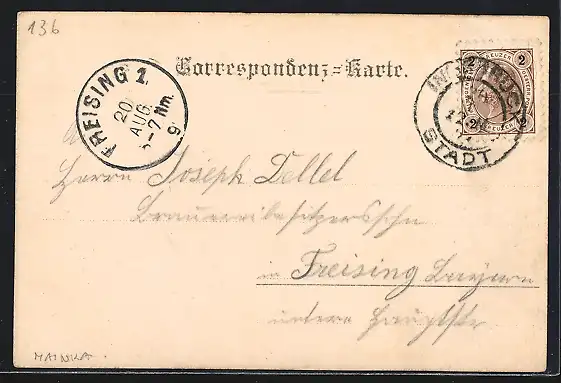 136
Correspondenz=Karte.
FREISING 1.
20
AUG.
5-7 Nm.
9
2 KREUZER 2
INNSBRUCK
STADT
Herrn Joseph Dellel
Brauereibesitzerssohn
in Freising Bayern
untere Hauptstr
MAINKA.